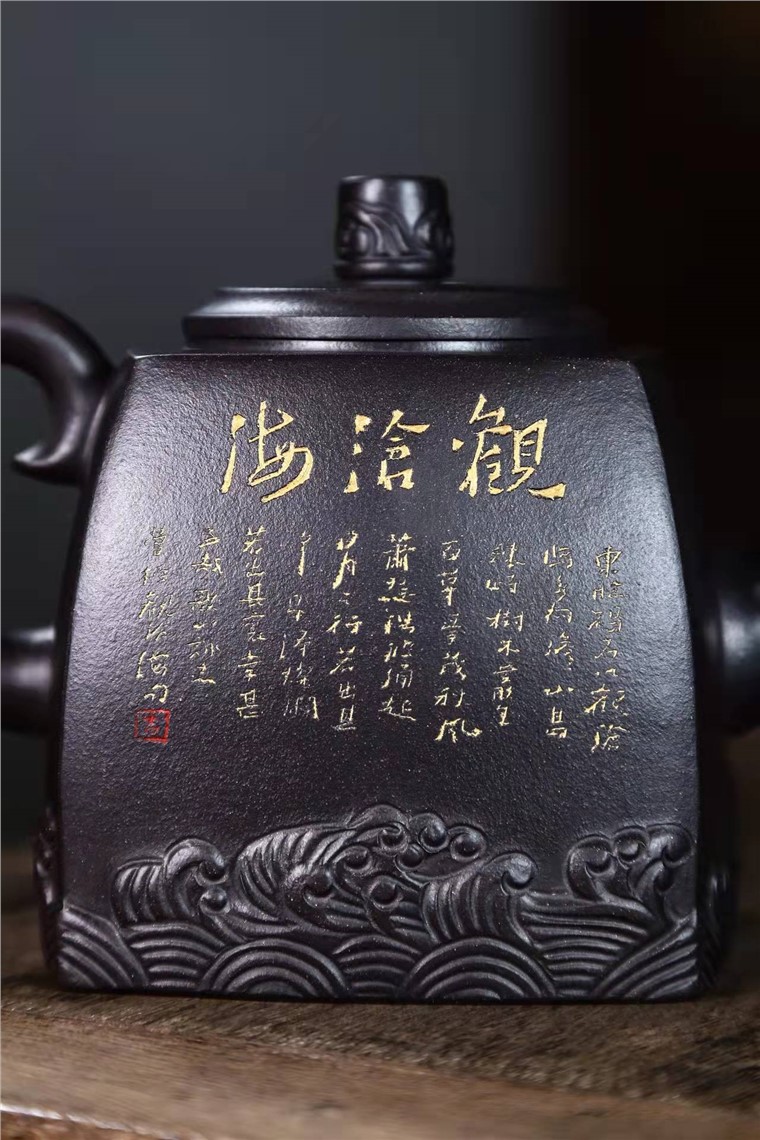 觀滄海
東臨碣石以觀滄
海水何澹々山島
竦峙樹木叢生
百草豐茂秋風
蕭瑟洪波涌起
日月之行若出其
中星漢燦爛
若出其裏幸甚
至哉歌以詠志
曹操觀滄海